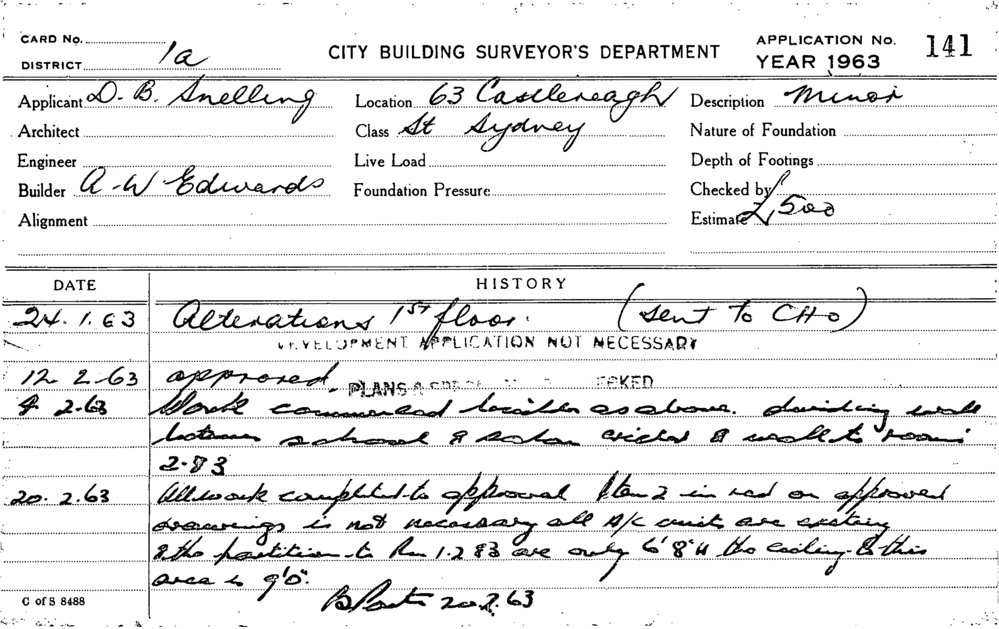 CARD No.
DISTRICT 1a
CITY BUILDING SURVEYOR'S DEPARTMENT
APPLICATION No. 141
YEAR 1963
Applicant D. B. Snelling
Location 63 Castlereagh
Description Minor
Architect
Class St Sydney
Nature of Foundation
Engineer
Live Load
Depth of Footings
Builder A-W Edwards
Foundation Pressure
Checked by
Alignment
Estimate £1,500
DATE
HISTORY
24.1.63 Alterations 1ST floor. (Sent To CHO)
DEVELOPMENT APPLICATION NOT NECESSARY
12.2.63 approved.
PLANS &
2.63 Work commenced builder as above. dividing wall
between school & salon & wall to rooms
2.83
20.2.63 All work completed to approval Item 2 in red on approved
drawings is not necessary all A/c units are existing
& the partition to Rm 1.2 & 3 are only 6'8" H the ceiling to this
area is 9'0".
20.2.63
C of S 8488